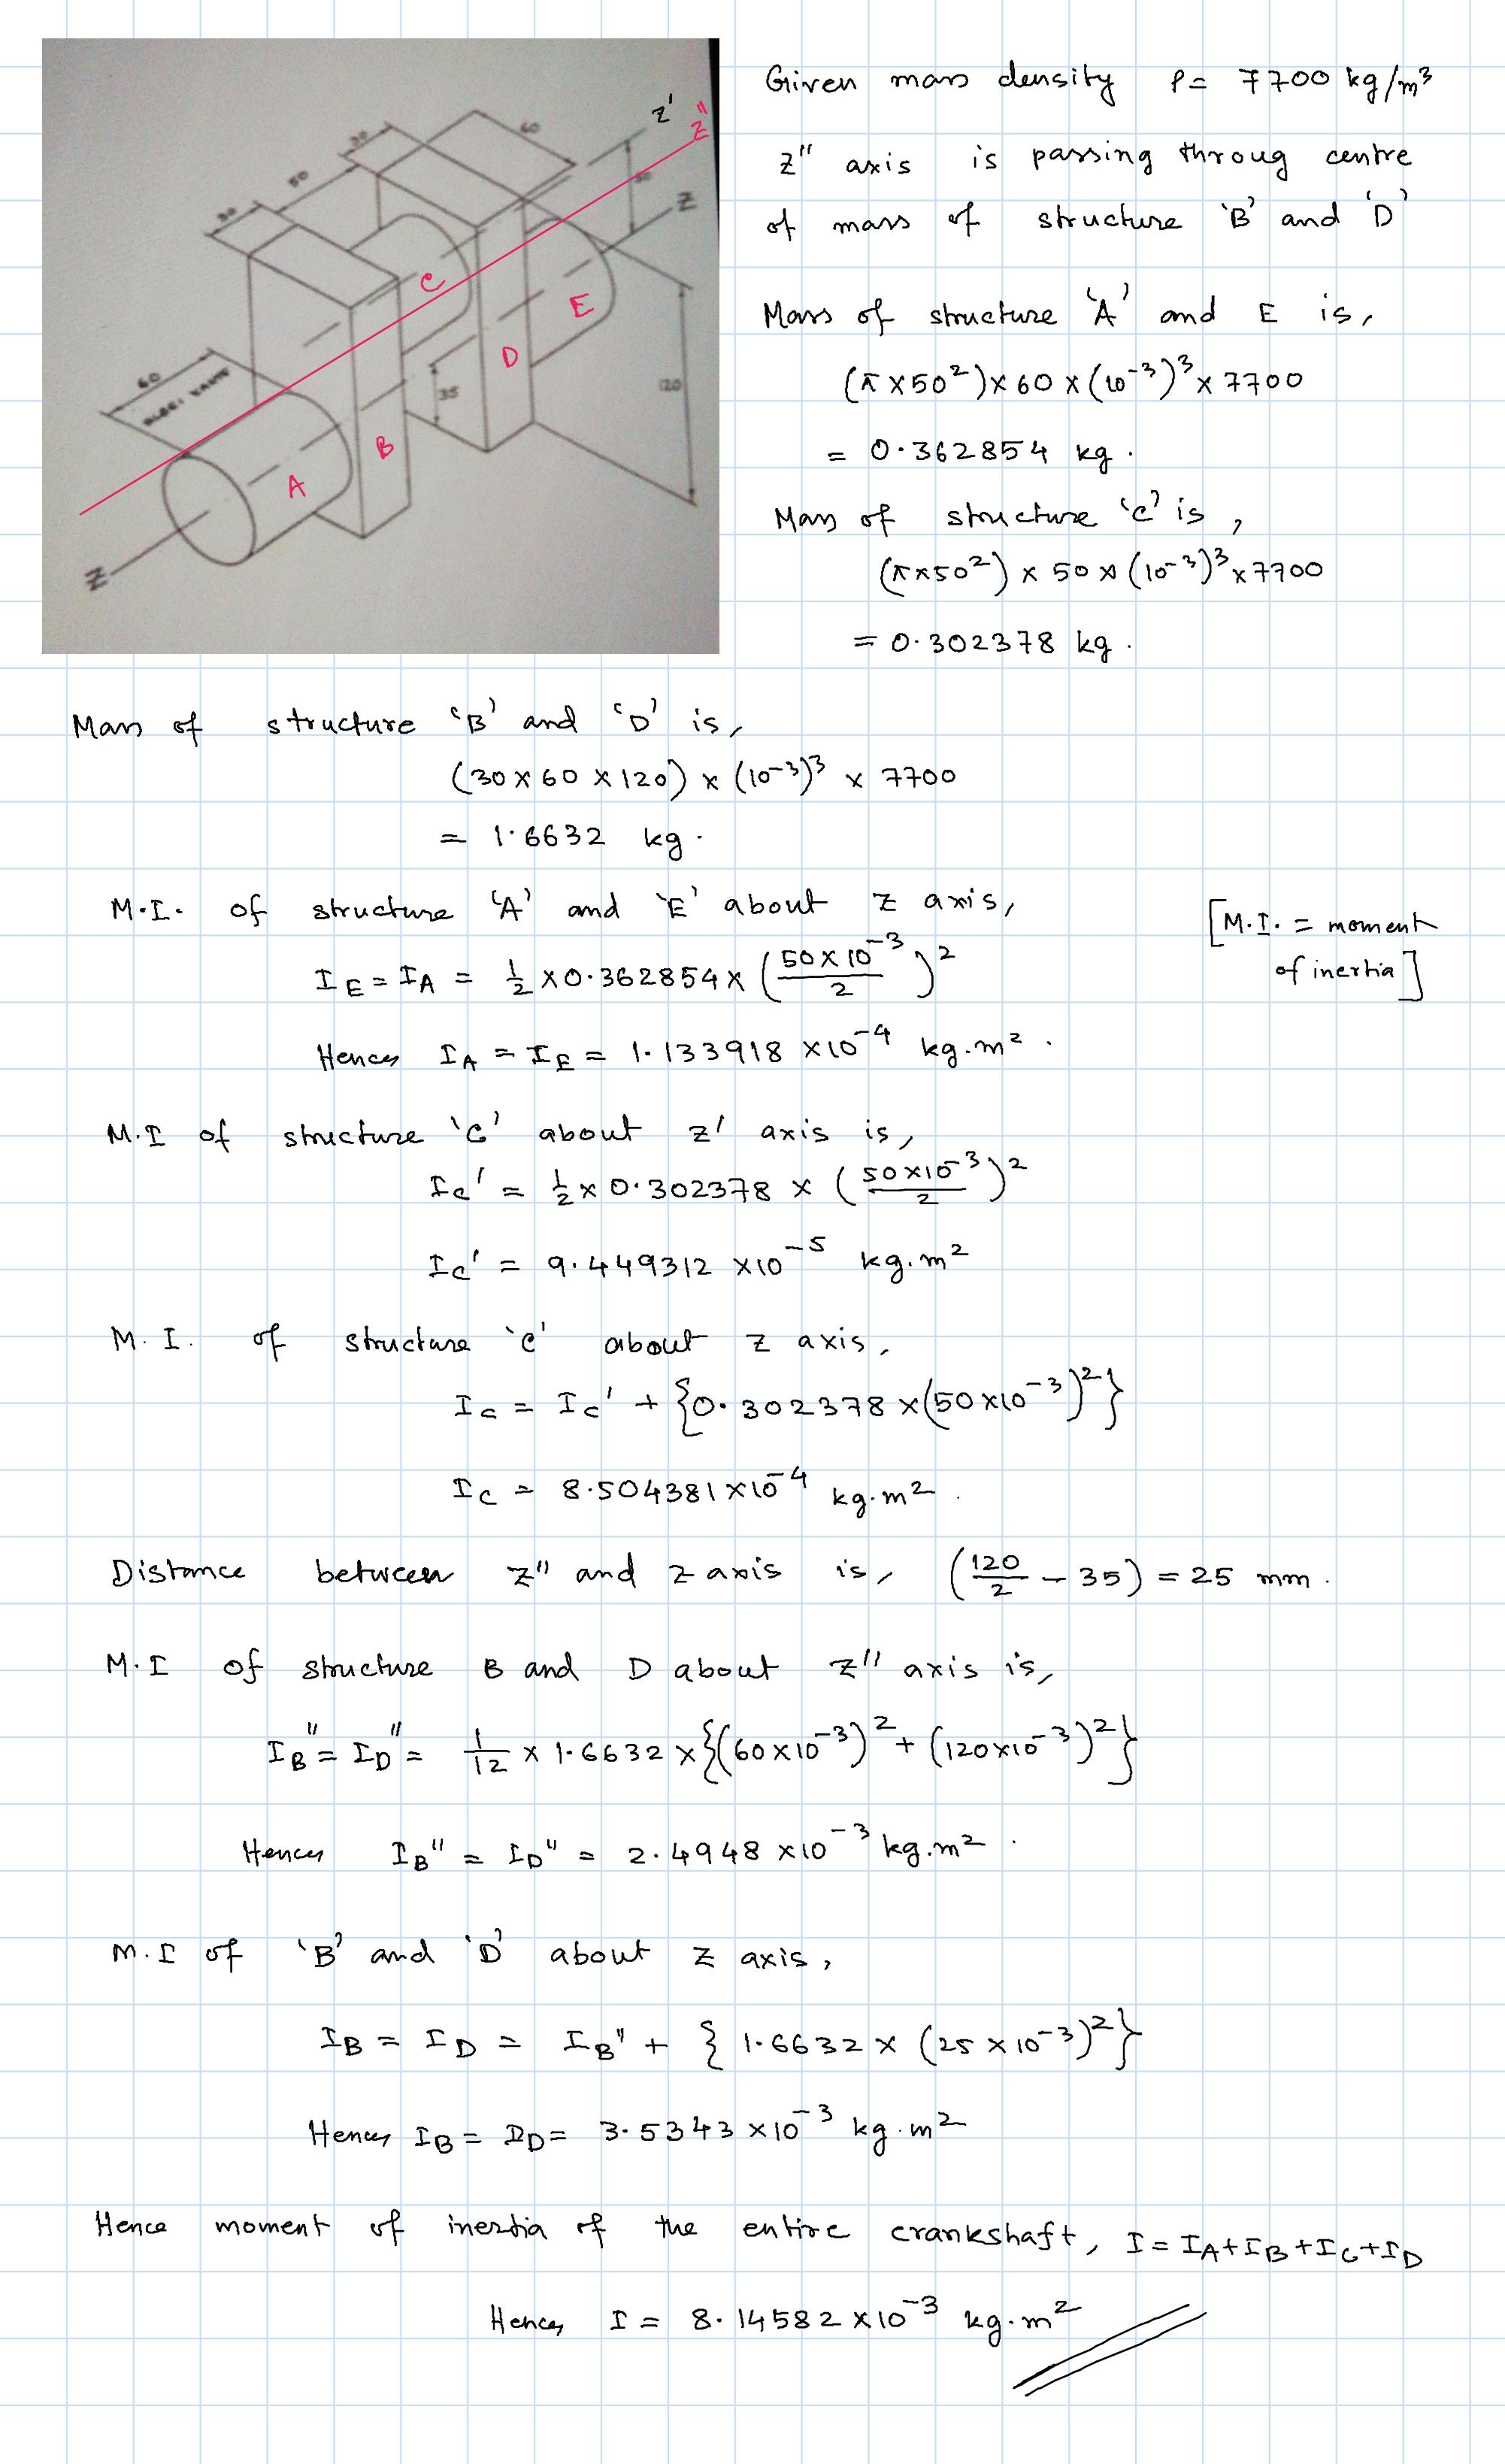 Given mass density ρ = 7700 kg/m³
z" axis is passing throug centre
of mass of structure 'B' and 'D'
Mass of structure 'A' and E is,
(π × 50²) × 60 × (10⁻³)³ × 7700
= 0.362854 kg.
Mass of structure 'C' is,
(π × 50²) × 50 × (10⁻³)³ × 7700
= 0.302378 kg.
z'
z"
60
30
50
30
z
C
E
D
60
120
35
B
A
z
Mass of structure 'B' and 'D' is,
(30 × 60 × 120) × (10⁻³)³ × 7700
= 1.6632 kg.
M.I. of structure 'A' and 'E' about z axis,
[M.I. = moment
of inertia]
I_E = I_A = 1/2 × 0.362854 × (50×10⁻³/2)²
Hence, I_A = I_E = 1.133918 × 10⁻⁴ kg.m².
M.I of structure 'C' about z' axis is,
I_C' = 1/2 × 0.302378 × (50×10⁻³/2)²
I_C' = 9.449312 × 10⁻⁵ kg.m²
M.I. of structure 'C' about z axis,
I_C = I_C' + {0.302378 × (50×10⁻³)²}
I_C = 8.504381 × 10⁻⁴ kg.m².
Distance between z" and z axis is, (120/2 - 35) = 25 mm.
M.I of structure B and D about z" axis is,
I_B" = I_D" = 1/12 × 1.6632 × {(60×10⁻³)² + (120×10⁻³)²}
Hence, I_B" = I_D" = 2.4948 × 10⁻³ kg.m².
M.I of 'B' and 'D' about z axis,
I_B = I_D = I_B" + {1.6632 × (25×10⁻³)²}
Hence, I_B = I_D = 3.5343 × 10⁻³ kg.m²
Hence moment of inertia of the entire crankshaft, I = I_A + I_B + I_C + I_D
Hence, I = 8.14582 × 10⁻³ kg.m²